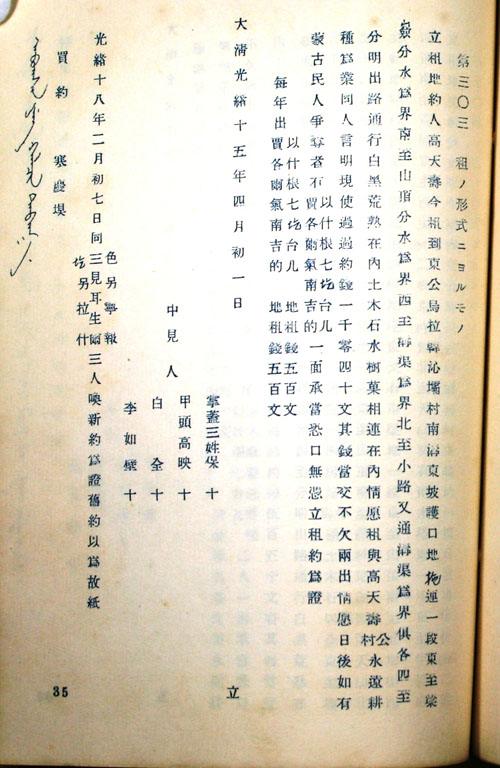 第三〇三　租ノ形式ニヨルモノ
立租地約人高天壽今租到東公烏拉 沁壩村南溝東坡護口地 連一段東至梁
分水爲界南至山頂分水爲界西至溝渠爲界北至小路又通溝渠爲界俱各四至
分明出路通行白黑荒熟在內土木石水樹菓相連在內情愿租與高天壽公村永遠耕
種爲業同人言明現使過過約錢一千零四十文其錢當交不欠兩出情愿日後如有
蒙古民人爭 者有以什根七圪台儿賈各爾氣南吉的一面承當恐口無憑立租約爲證
每年出以什根七圪台儿賈各爾氣南吉的　地租錢五百文地租錢五百文
大清光緒十五年四月初一日　立
掌蓋三姓保　十
甲頭高映　十
中見人　白　全　十
李如壁　十
光緒十八年二月初七日同色另寧報三見耳生爾圪另拉什三人喚新約爲證舊約以爲故紙
買約　寒 垻
35